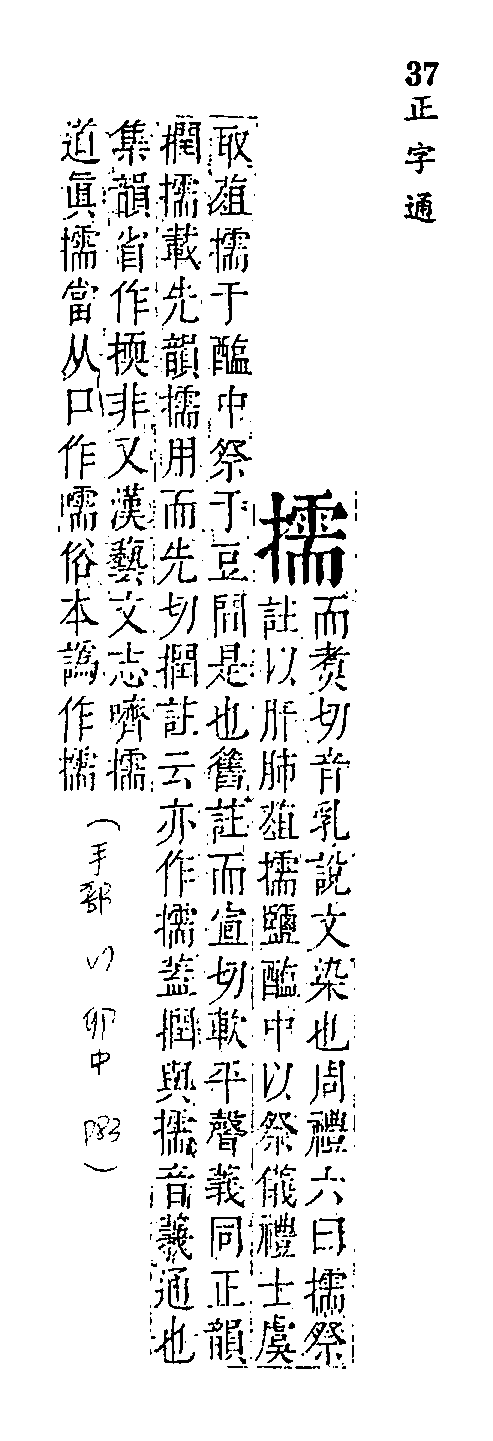 37正字通
擩
而煑切音乳說文染也周禮六曰擩祭
註以肝肺葅擩鹽醢中以祭儀禮士虞
取葅擩于醢中祭于豆閒是也舊註而宣切軟平聲義同正韻
撋擩載先韻擩用而先切撋註云亦作擩葢撋與擩音義通也
集韻省作㨎非又漢藝文志嚌擩
道眞擩當从口作嚅俗本譌作擩
(手部 卯中 P83)